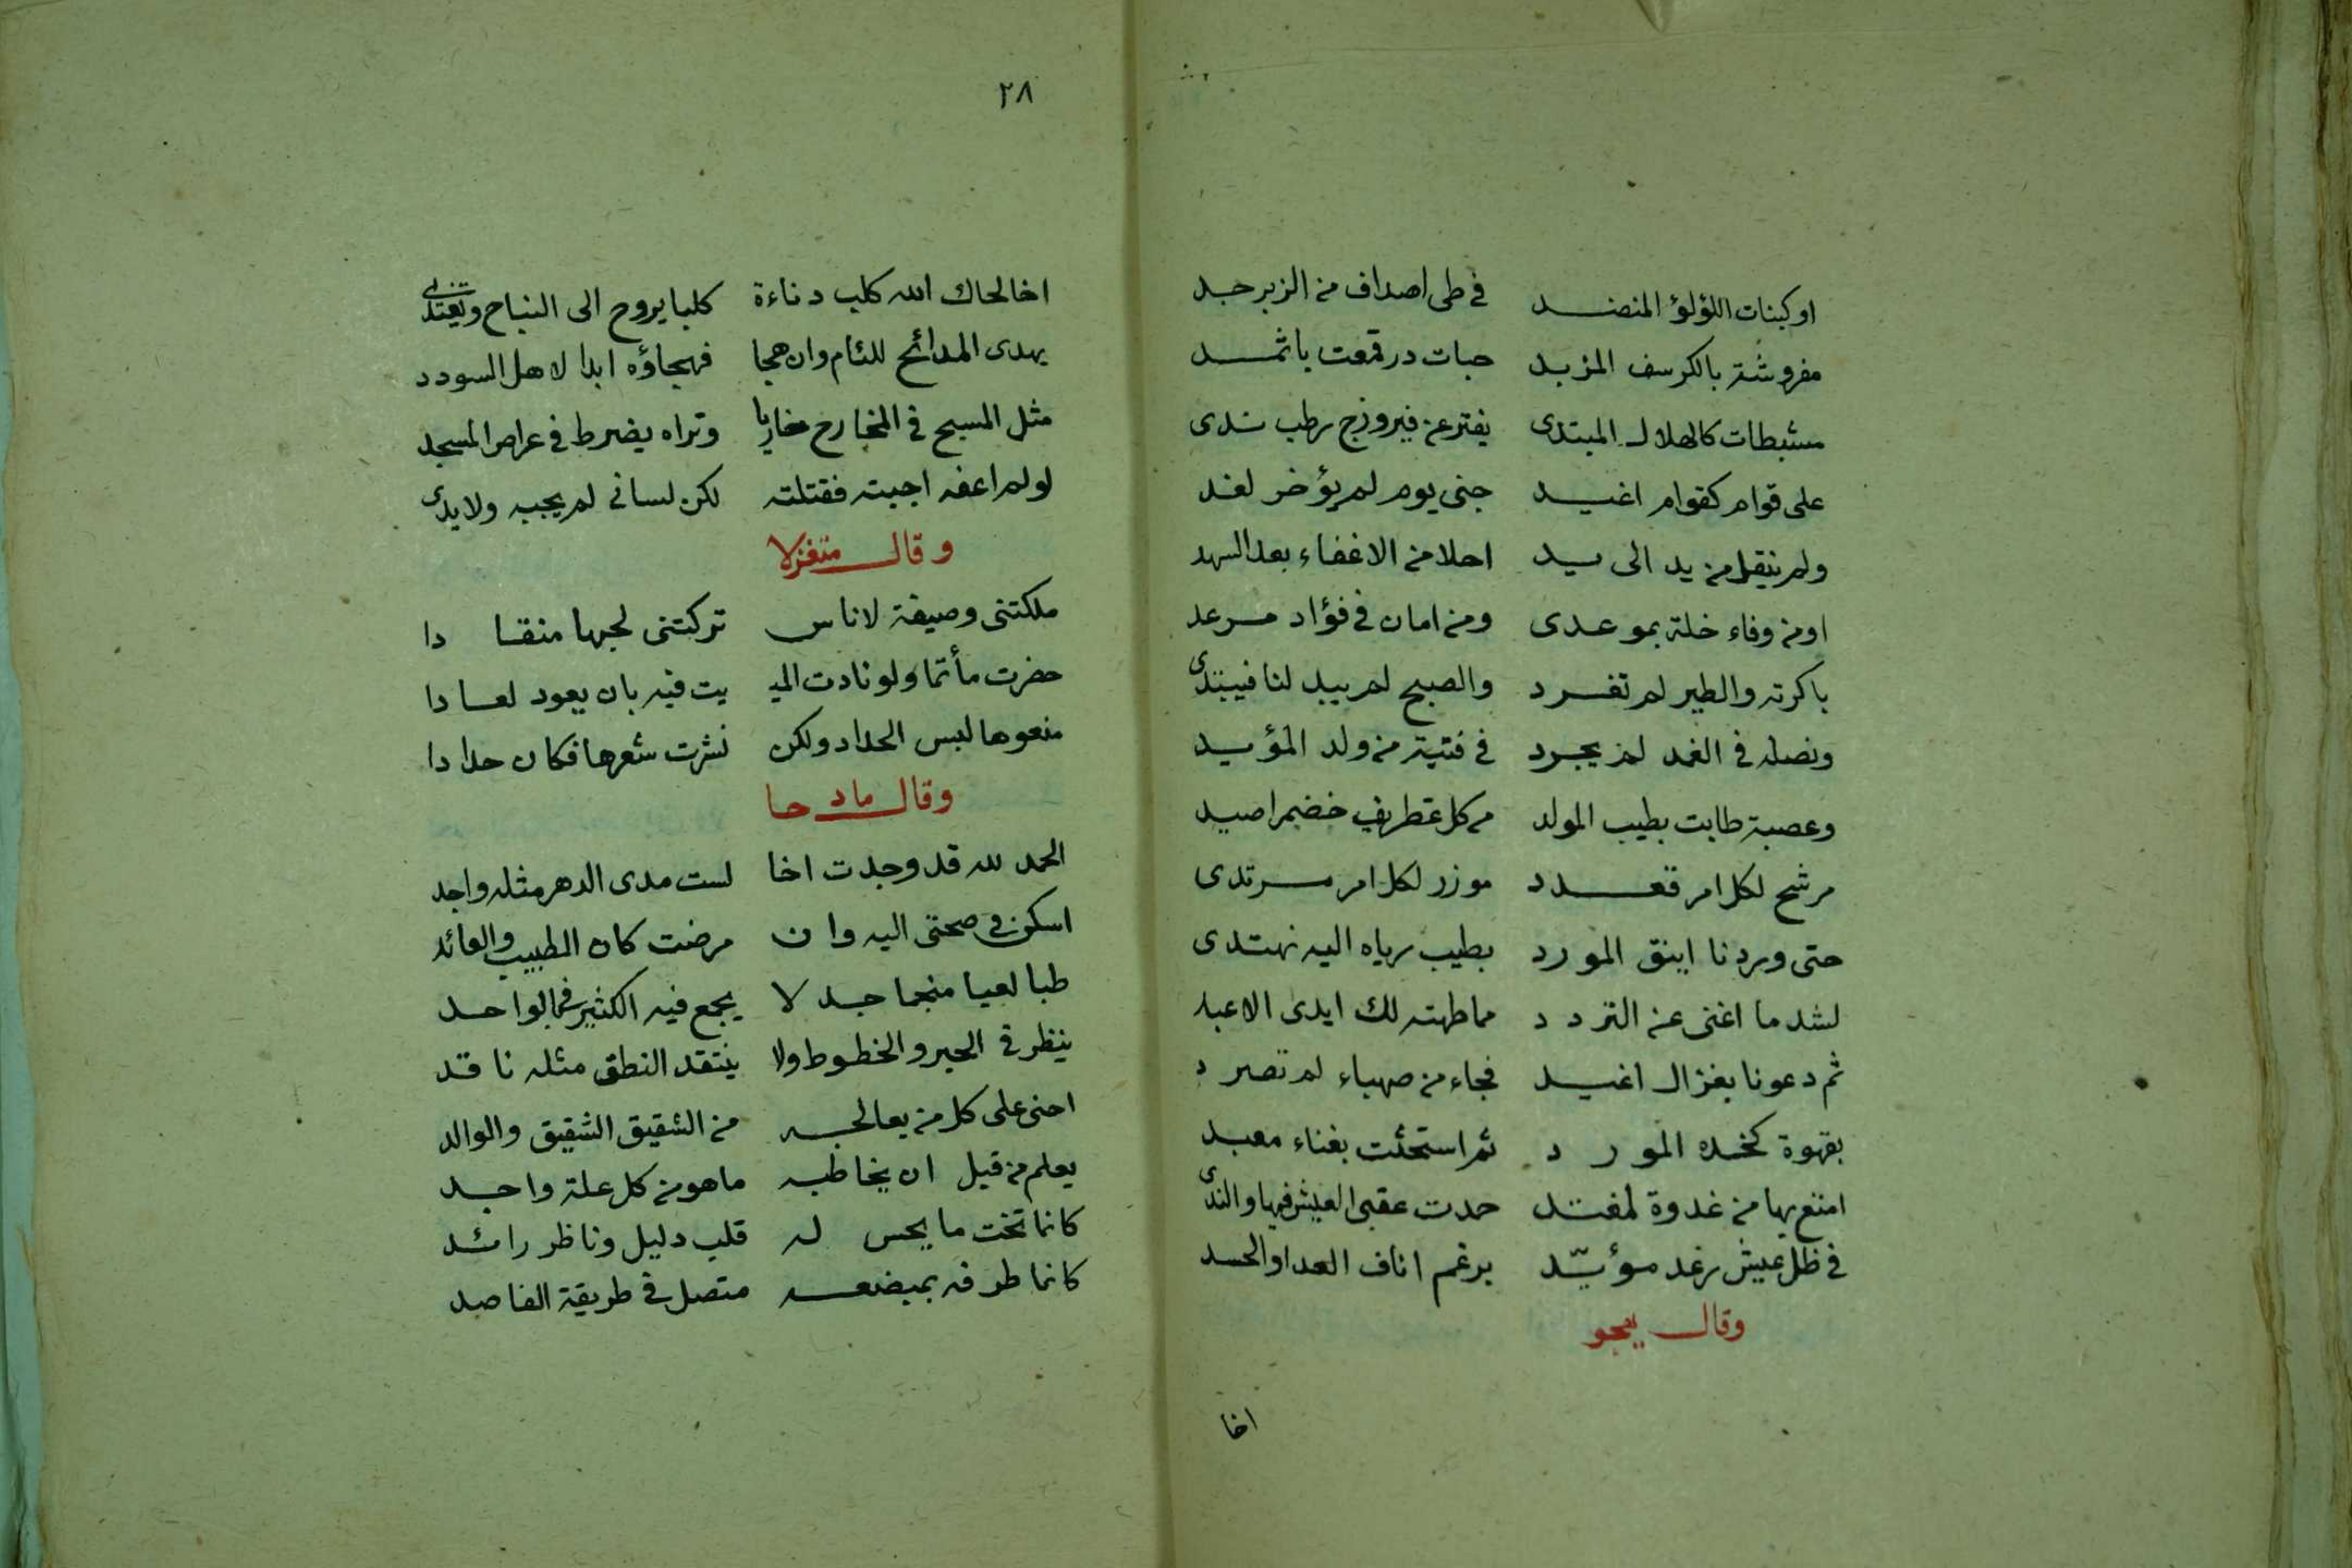 اوكبنات اللؤلؤ المنضد في طي اصداف من الزبرجد
مفروشة بالكرسف المزبد حبات در قمعت باثمد
مشبطات كالهلال المبتدى يفتر عن فيروزج رطب ندى
على قوام كقوام اغيد جنى يوم لم يؤخر لغد
ولم ينقل من يد الى يد احلا من الاغفاء بعد السهد
او من وفاء خلة بموعدى ومن امان في فؤاد مرعد
باكرته والطير لم تغرد والصبح لم يبد لنا فيبتدى
ونصله في الغمد لم يجرد في فتية من ولد المؤيد
وعصبة طابت بطيب المولد من كل غطريف خضم اصيد
مرشح لكل امر قعدد موزر لكل امر مرتدى
حتى وردنا اينق المورد بطيب رياه اليه نهتدى
لشد ما اغنى عن التردد مما طهته لك ايدى الاعبد
ثم دعونا بغزال اغيد فجاء من صهباء لم تصرد
بقهوة كخده المورد ثم استحثت بغناء معبد
امتع بها من غدوة لمغتد حمدت عقبى العيش فيها والندى
في ظل عيش رغد مؤيّد برغم اناف العدا والحسد
وقال يهجو
اخا
٢٨
اخا لحاك الله كلب دناءة كلبا يروح الى النباح ويغتدى
يهدى المدائح للئام وان هجا فهجاؤه ابدا لاهل السودد
مثل المسيح في المخارج مخازيا وتراه يضرط في عراص المسجد
لولم اعفه اجبته فقتلته لكن لسانى لم يجبه ولا يدى
وقال متغزلا
ملكتنى وصيفة لاناس تركتنى لحبها منقادا
حضرت مأتما ولو نادت الميـ يت فيه بان يعود لعادا
منعوها لبس الحداد ولكن نشرت شعرها فكان حدادا
وقال مادحا
الحمد لله قد وجدت اخا لست مدى الدهر مثله واجد
اسكن في صحتى اليه وان مرضت كان الطبيب والعائد
طبا لعيا منجما جدلا يجمع فيه الكثير في الواحد
ينظر في الجبر والخطوط ولا ينتقد النطق مثله ناقد
احنى على كل من يعالجه من الشقيق الشقيق والوالد
يعلم من قبل ان يخاطبه ما هو من كل علة واجد
كانما تخت ما يحس له قلب دليل وناظر رائد
كانما طرفه بمبضعه متصل في طريقة الفاصد